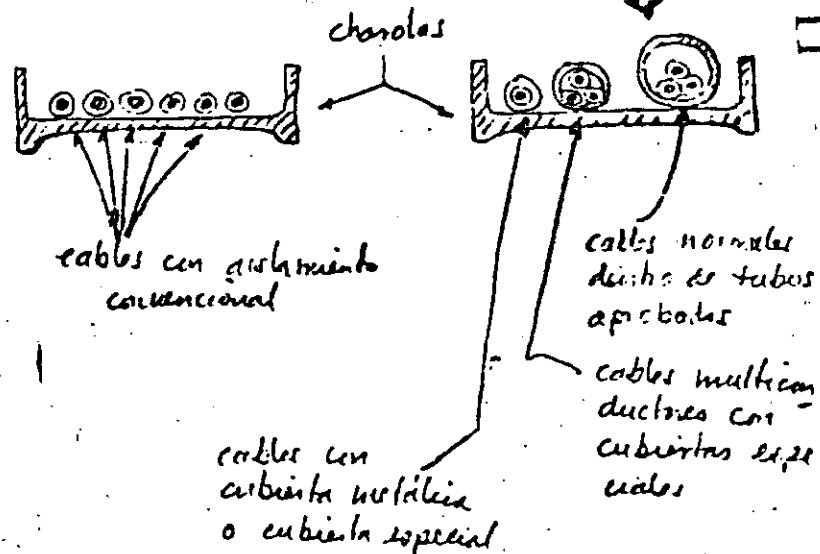 charolas
cables con aislamiento
convencional
cables normales
dentro de tubos
aprobados
cables multicon
ductores con
cubiertas espe
ciales
cables con
cubierta metálica
o cubierta especial